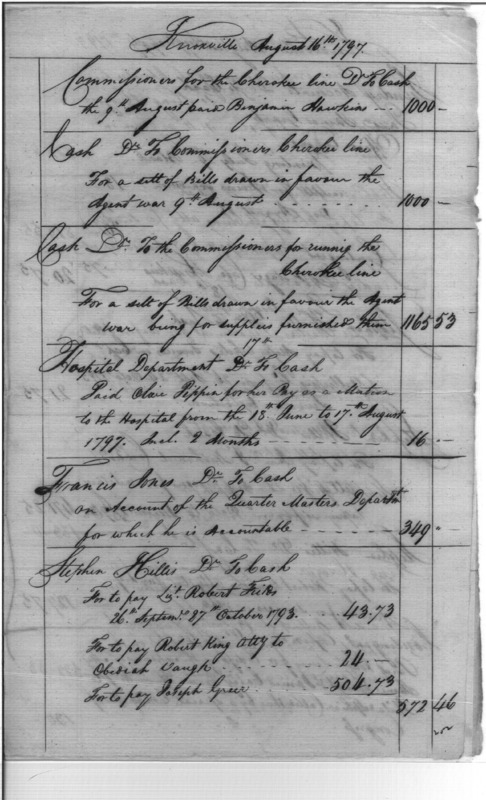 Knoxville August 16th 1797.
Commissioners for the Cherokee line Dr To Cash
the 9th August paid Benjamin Hawkins 1000 —
Cash Dr To Commissioners Cherokee line
For a sett of Bills drawn in favour the
Agent war 9th August 1000 —
Cash Dr To the Commissioners for runnig the
Cherokee line
For a sett of Bills drawn in favour the Agent
war being for supplies furnished them 1165 53
17th
Hospital Department Dr To Cash
Paid Pippin for her Pay as a Matron
to the Hospital from the 18th June to 17th August
1797. Incl. 2 Months 16 —
Francis Jones Dr To Cash
on Account of the Quarter Masters Departmt
for which he is Accountable 349 -
Stephen Hillis Dr To Cash
For to pay Lieut. Robert
26th Septemr. 27th October 1793. 43.73
For to pay Robert King Atty to
Obediah Vaugh 24 —
For to pay Joseph Greer 504.73
572 46